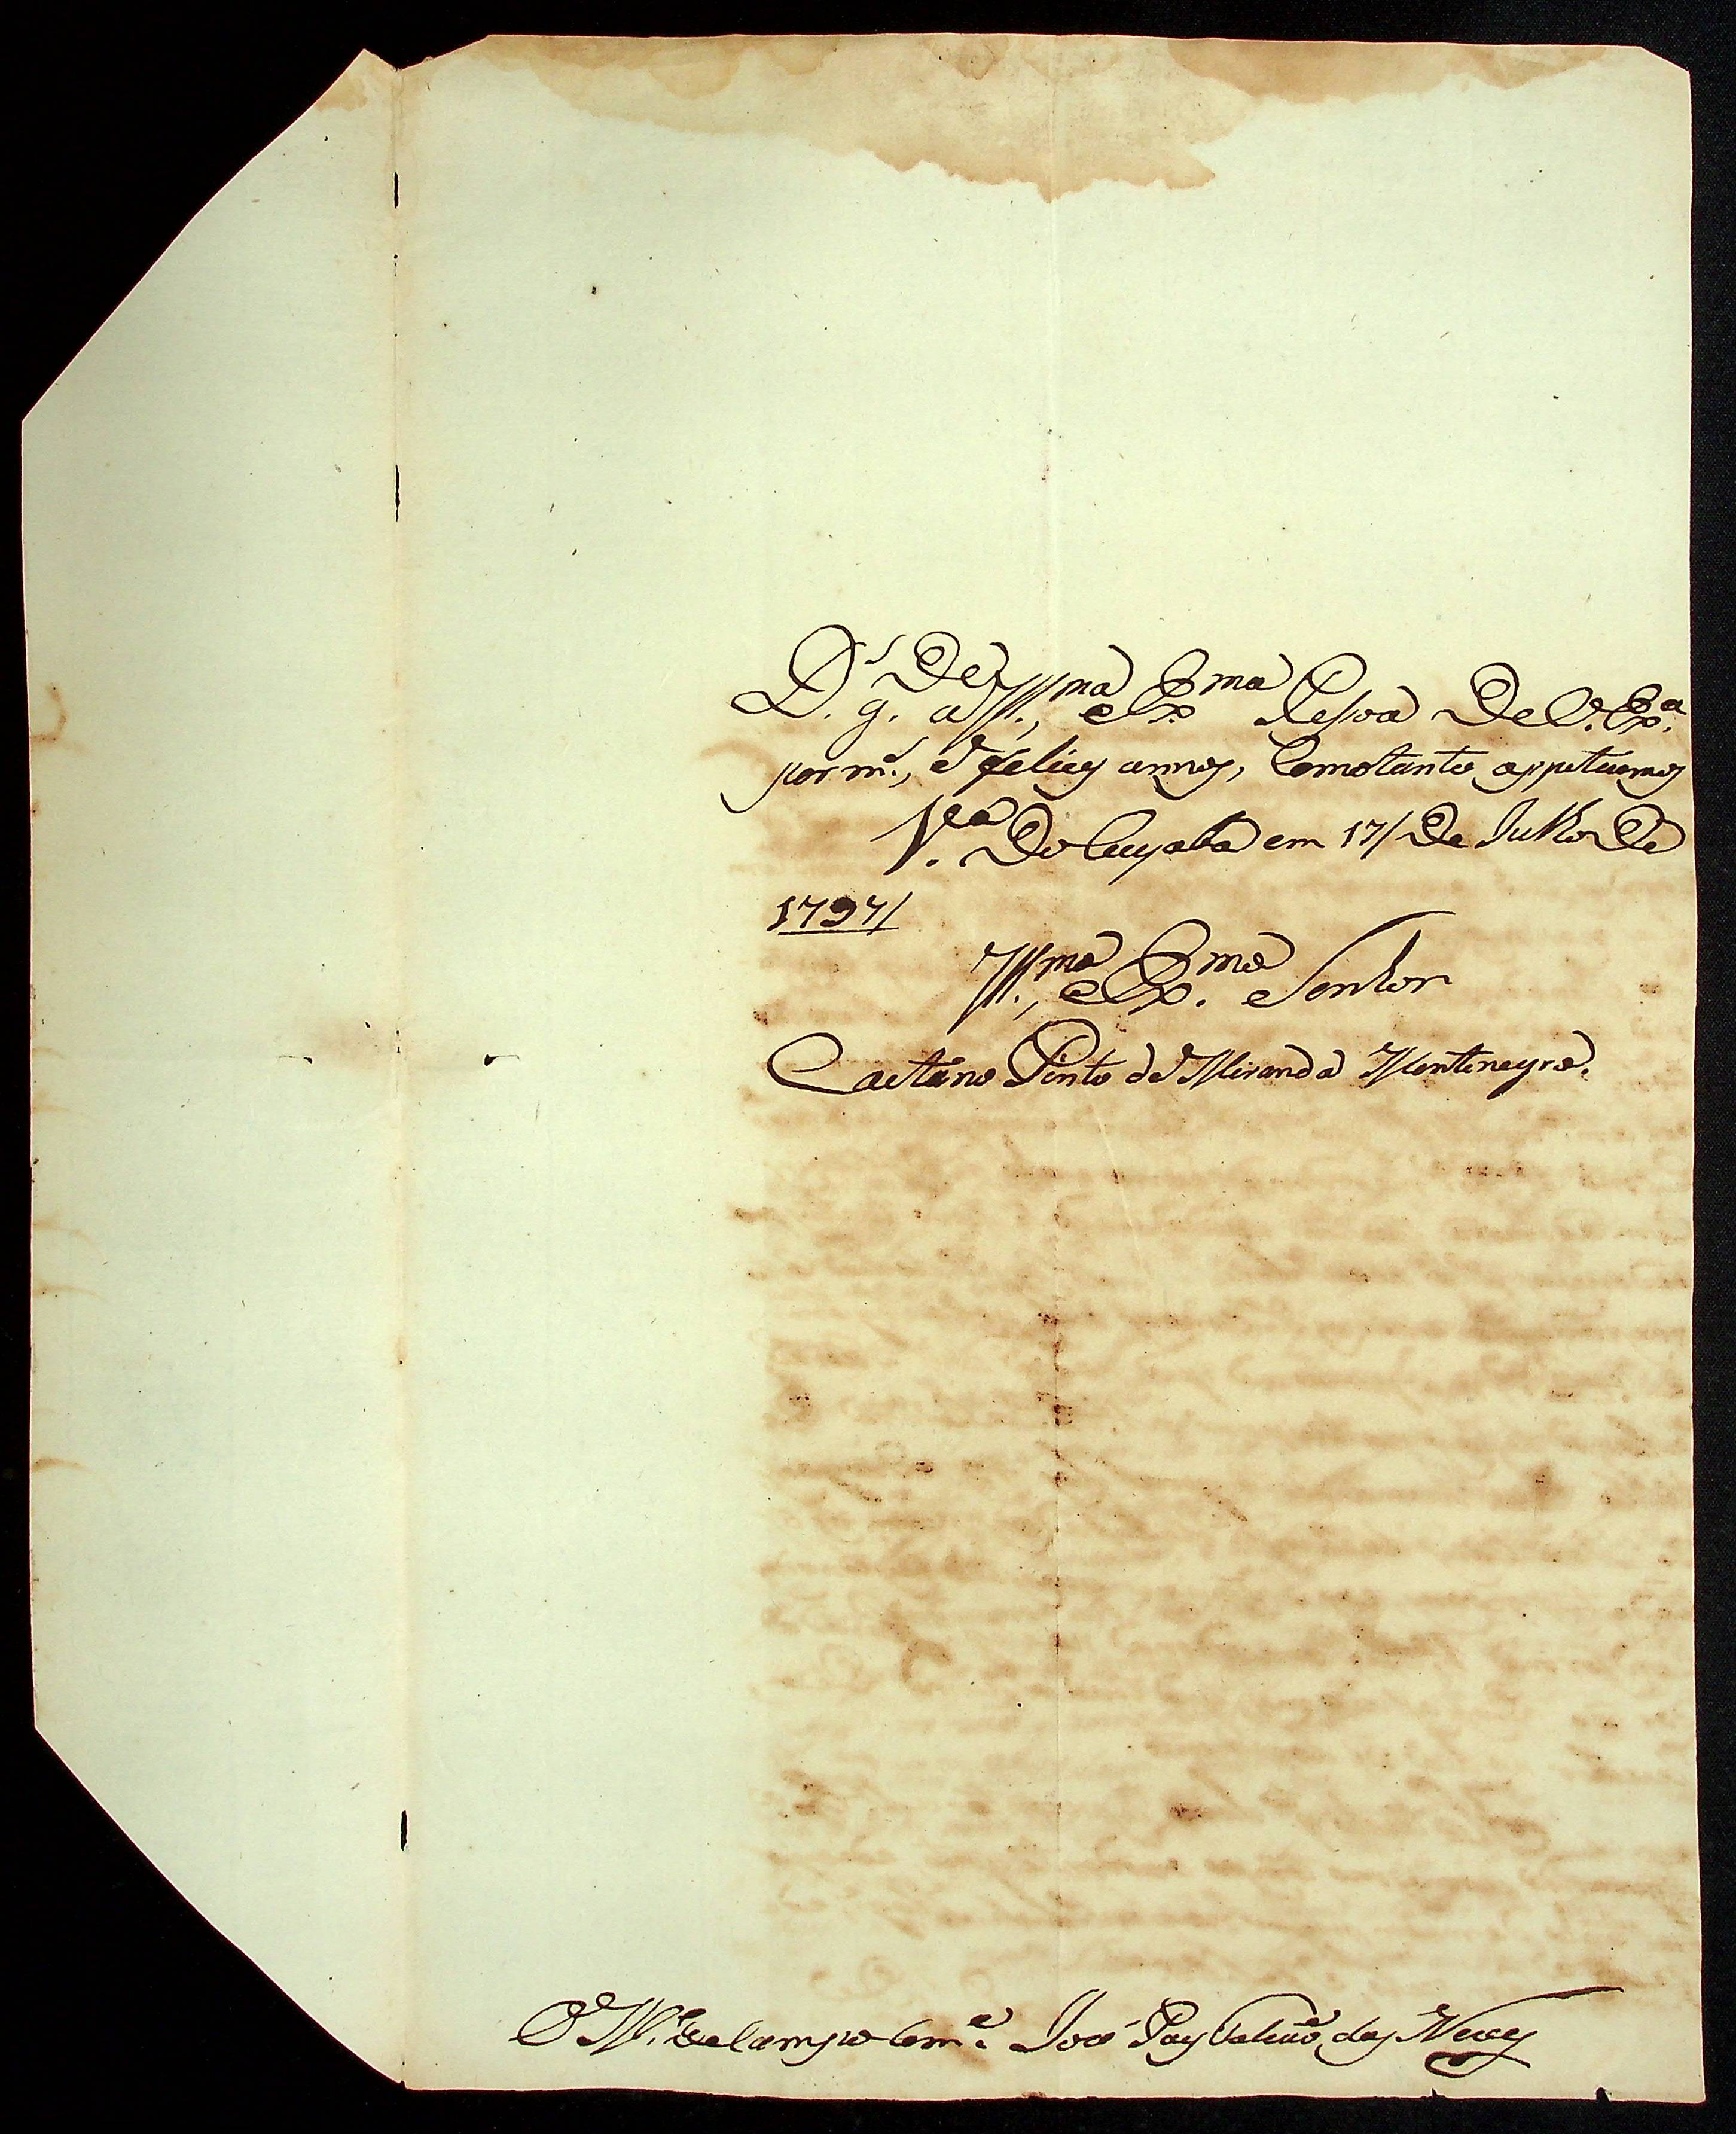 D.s g.de a Ill.ma, e Ex.ma Pessoa De V. Ex.a
por m.s, e felices annos, Como tanto appetecemos
V.a Do Cuyaba em 17/ De Julho De
1797/
Ill.mo, e Ex.mo Senhor
Caetano Pinto de Miranda Montenegro.
O M.e de Campo Com.e José Paes Falcaõ das Neves